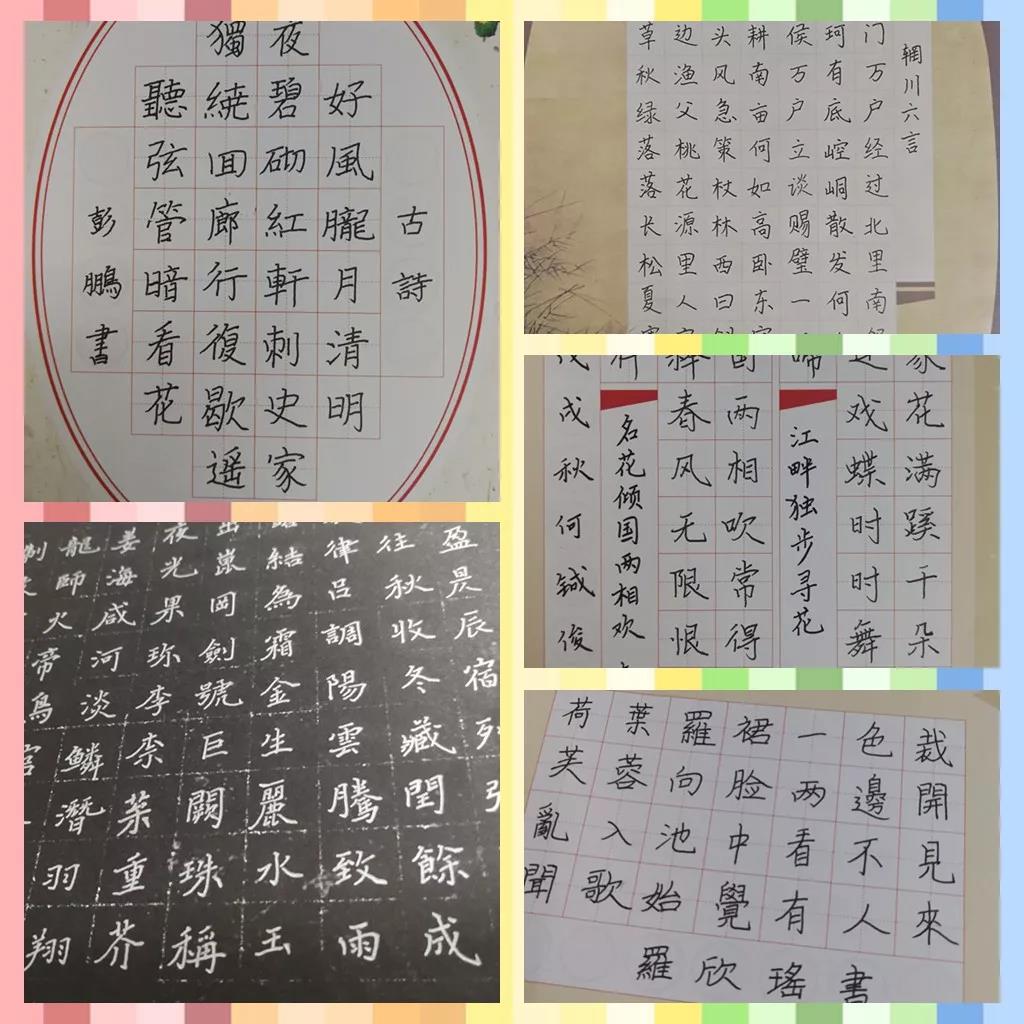 古詩
好風朧月清明
夜碧砌紅軒刺史家
獨繞囬廊行復歇遥
聽弦管暗看花
彭鵬書
辋川六言
门万户经过北里南
珂有底崆峒散发何
侯万户立谈赐璧一
耕南亩何如高卧东
头风急策杖林西曰
边渔父桃花源里人
草秋绿落落长松夏
家花满蹊千朵
戏蝶时时舞
江畔独步寻花
啼
国两相欢常得
释春风无限恨
名花倾国两相欢
成秋何鋮俊
盈昃辰宿列
往秋收冬藏閏餘成
律呂調陽雲騰致雨
結為霜金生麗水玉
出崑岡劍號巨闕珠稱
夜光果珍李柰菜重芥
姜海咸河淡鱗潛羽翔
龍師火帝鳥官
荷葉羅裙一色裁
芙蓉向脸两邊開
亂入池中看不見
聞歌始覺有人來
羅欣瑤書